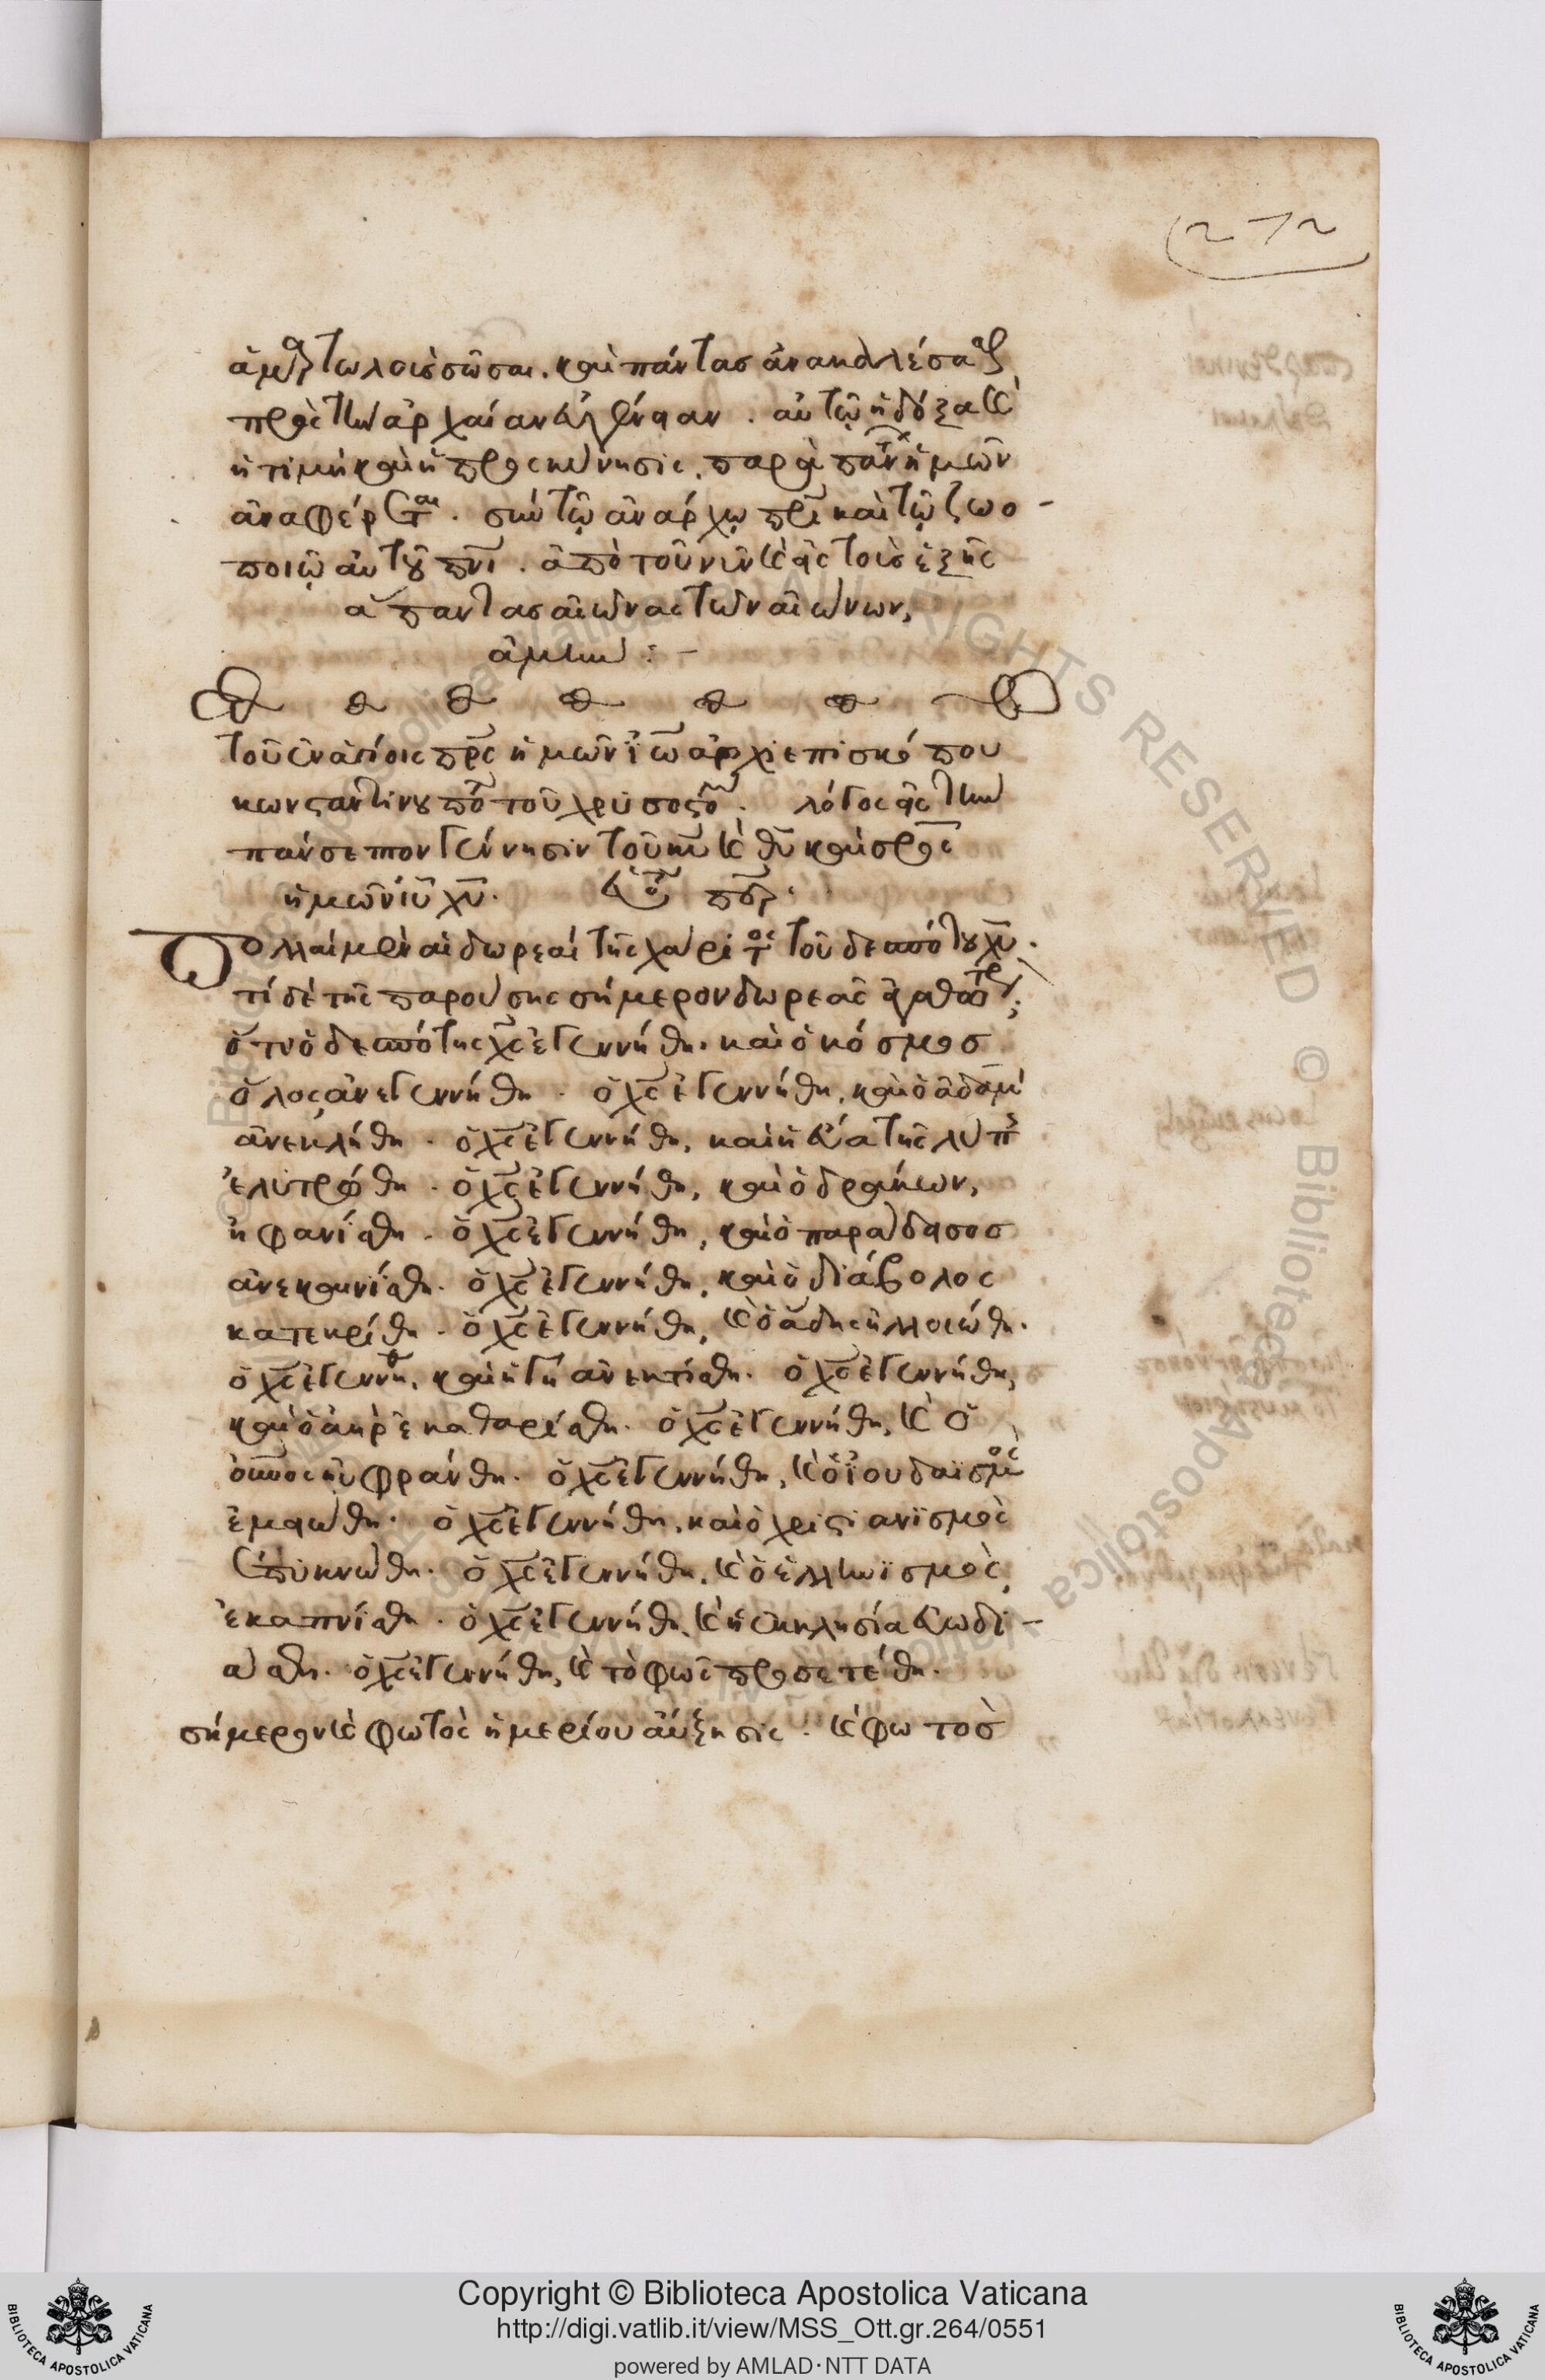 272
ἁμαρτωλοὺς σῶσαι. καὶ πάντας ἀνακαλέσασθαι
πρὸς τὴν ἀρχαίαν εὐγένειαν. αὐτῷ ἡ δόξα καὶ
ἡ τιμὴ καὶ ἡ προσκύνησις. παρὰ πάντων ἡμῶν
ἀναφέρεται. σὺν τῷ ἀνάρχῳ πρι καὶ τῷ ζωο-
ποιῷ αὐτοῦ πνι. ἀπὸ τοῦ νῦν καὶ εἰς τοὺς ἑξῆς
ἅπαντας αἰῶνας τῶν αἰώνων,
ἀμήν:-
τοῦ ἐν ἁγίοις πρς ἡμῶν ἰω ἀρχιεπισκόπου
κωνσταντινουπο τοῦ χρυσοστο. λόγος εἰς τὴν
πάνσεπτον γέννησιν τοῦ κυ καὶ θυ καὶ σρος
ἡμῶν ιυ χυ. εὐ περ.
Πολλαὶ μὲν αἱ δωρεαὶ τῆς χάριτος τοῦ δεσπότου χυ.
τί δὲ τῆς παρούσης σήμερον δωρεᾶς
ὅτι ὁ δεσπότης χς ἐγεννήθη. καὶ ὁ κόσμος
ὅλος ἀνεγεννήθη. ὁ χς ἐγεννήθη, καὶ ὁ ἀδὰμ
ἀνεκλήθη. ὁ χς ἐγεννήθη, καὶ ἡ εὔα τῆς λύπης
ἐλυτρώθη. ὁ χς ἐγεννήθη, καὶ ὁ δράκων,
ἠφανίσθη. ὁ χς ἐγεννήθη, καὶ ὁ παράδεισος
ἀνεκαινίσθη. ὁ χς ἐγεννήθη, καὶ ὁ διάβολος
κατεκρίθη. ὁ χς ἐγεννήθη, καὶ ὁ ἅδης ἠλλοιώθη.
ὁ χς ἐγεννήθη, καὶ ἡ γῆ ἀνεκτίσθη. ὁ χς ἐγεννήθη,
καὶ ὁ ἀὴρ ἐκαθαρίσθη. ὁ χς ἐγεννήθη, καὶ ὁ
ουνος ηὐφράνθη. ὁ χς ἐγεννήθη, καὶ ὁ ἰουδαϊσμὸς
ἐμειώθη. ὁ χς ἐγεννήθη, καὶ ὁ χριστιανϊσμὸς
ἐπυκνώθη. ὁ χς ἐγεννήθη, καὶ ὁ ἑλληνϊσμὸς,
ἐκαπνίσθη. ὁ χς ἐγεννήθη, καὶ ἡ ἐκκλησία εὐωδι-
άσθη. ὁ χς ἐγεννήθη, καὶ τὸ φῶς προσετέθη.
σήμερον καὶ φωτὸς ἡμερίου αὔξησις. καὶ φωτὸς
© Biblioteca Apostolica Vaticana ALL RIGHTS RESERVED © Biblioteca Apostolica Vaticana
Copyright © Biblioteca Apostolica Vaticana
http://digi.vatlib.it/view/MSS_Ott.gr.264/0551
powered by AMLAD·NTT DATA
BIBLIOTECA APOSTOLICA VATICANA
BIBLIOTECA APOSTOLICA VATICANA